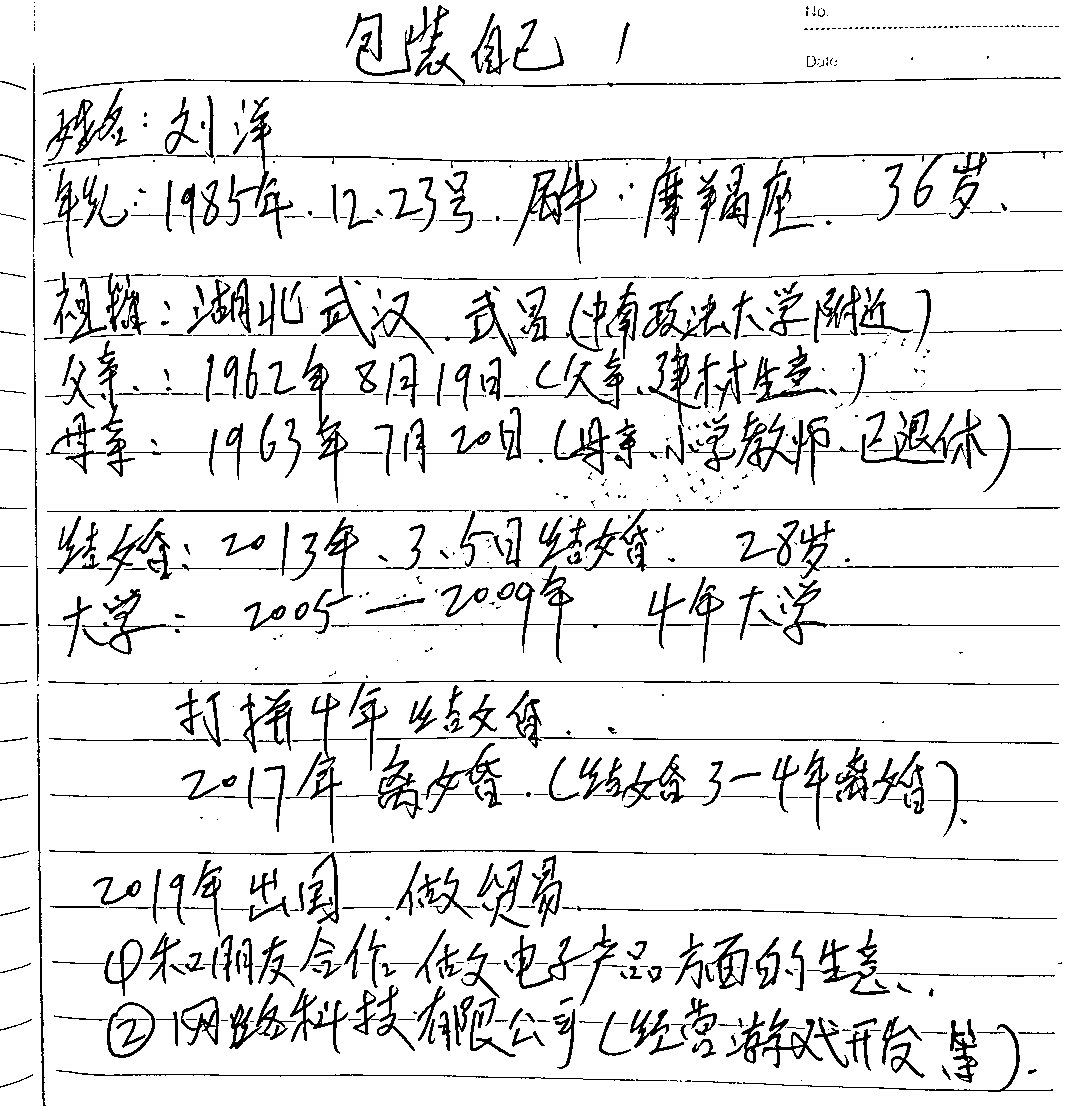 No.
Date
包装自己 1
姓名：刘洋
年龄：1985年.12.23号.属牛.摩羯座. 36岁.
祖籍：湖北武汉.武昌(中南政法大学附近)
父亲.：1962年8月19日(父亲.建材生意.)
母亲：1963年7月20日.(母亲.小学教师.已退休)
结婚：2013年.3.5日结婚. 28岁.
大学：2005—2009年. 4年大学
打拼4年结婚..
2017年离婚.(结婚3-4年离婚).
2019年出国.做贸易.
①和朋友合作做电子产品方面的生意..
②网络科技有限公司(经营游戏开发等).